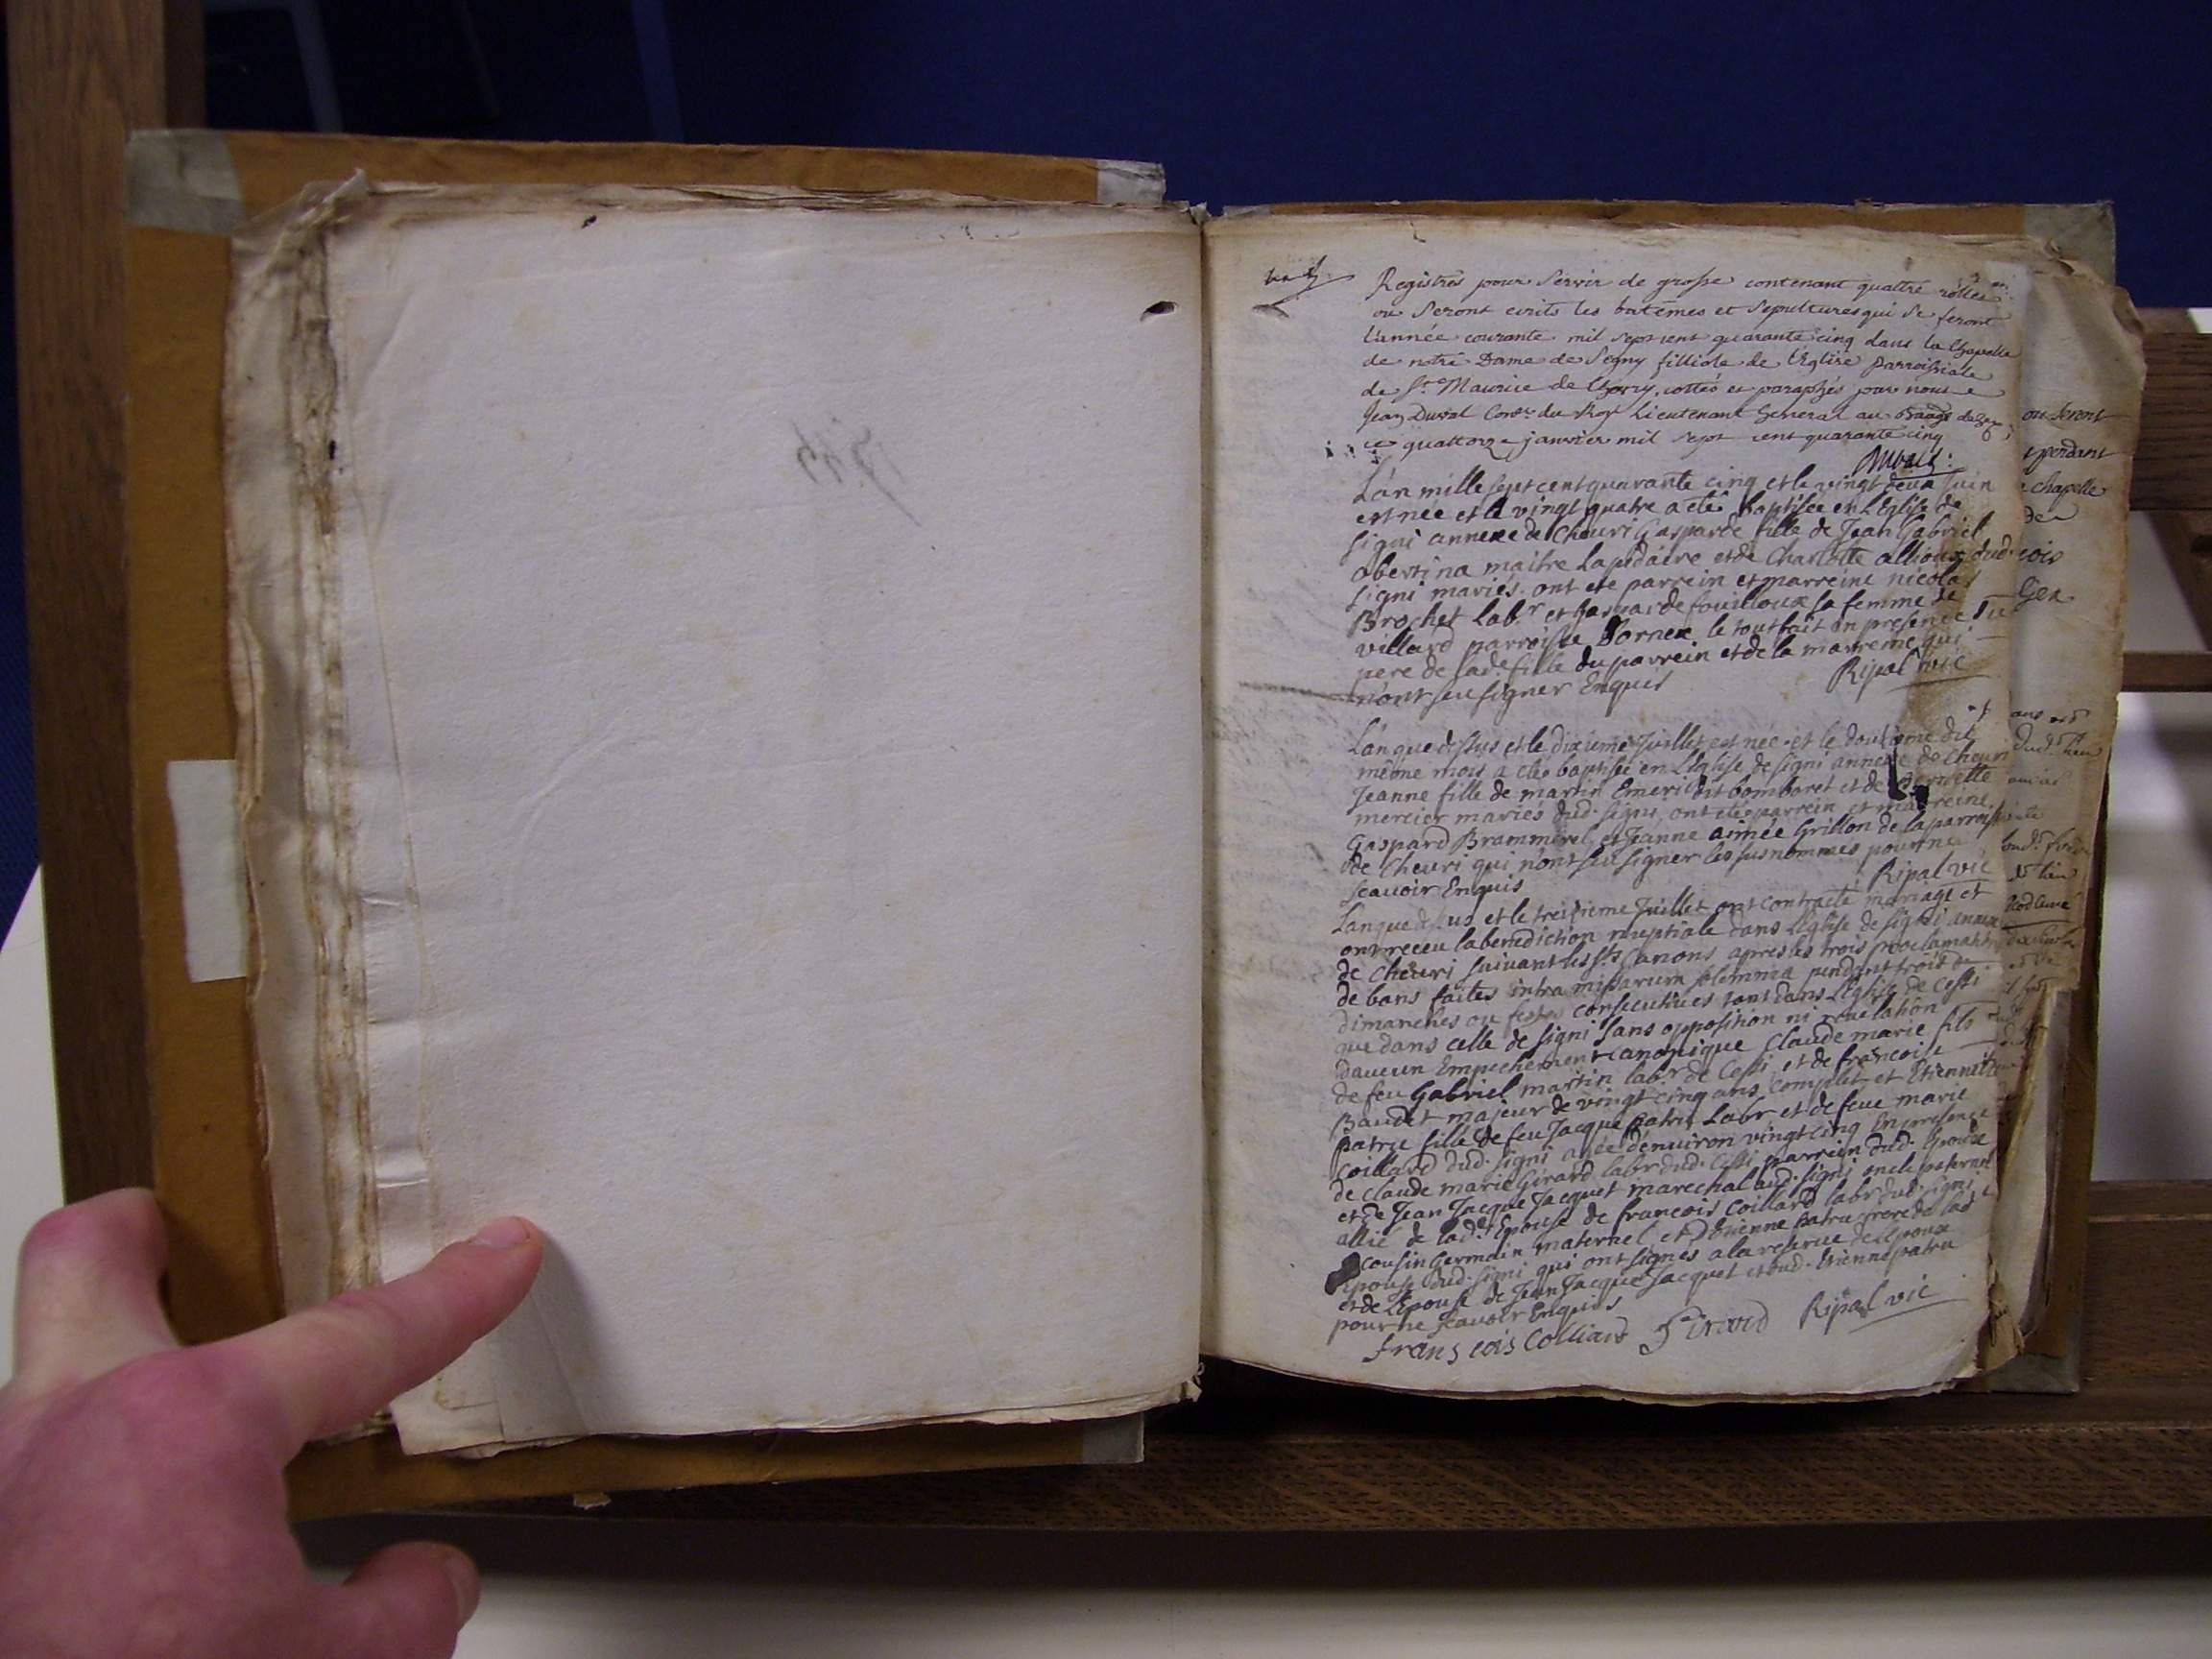 Registres pour servir de grosse contenant quattre rolles
ou seront ecrits les batêmes et sepultures qui se feront
l'année courante mil sept cent quarante cinq dans la Chapelle
de notre Dame de Segny filliole de l'Eglise Parroissiale
de St. Maurice de Chevry, cottés et paraphés par nous
Jean Duval Conser. du Roy Lieutenant General au Baage de Gex
ce quattorze janvier mil sept cent quarante cinq
Duval
L'an mille sept cent quarante cinq et le vingt deux juin
est née et le vingt quatre a eté baptisée en l'Eglise de
signi annexe de Cheuri Gasparde fille de Jean Gabriel
obertina maitre lapidaire et de Charlotte allioux dud.
signi mariés. ont eté parrein et marreine nicolas
Brochet labr. et Gasparde fouilloux sa femme de
villard parroisse Dornex. le tout fait en presence du
pere de lade. fille du parrein et de la marreine qui
n'ont seu signer Enquis
Ripal vic
L'an que dessus et le dixieme Juillet est née et le douzieme dit
même mois a eté baptisée en L'Eglise de signi annexe de Cheuri
Jeanne fille de martin Emeri dit bomboret et de Pernette
mercier mariés dud. signi, ont eté parrein et marreine
Gaspard Brammerel et Jeanne aimée Grillon de la parroisse
de Cheuri qui n'ont seu signer les susnommés pour ne
scauoir Enquis
Ripal vic
L'an que dessus et le treizieme Juillet ont contracté mariage et
ont receu la benediction nuptiale dans L'Eglise de signi annexe
de Cheuri suivant les sts Canons apres les trois proclamations
de bans faites intra missarum solemnia pendant trois
dimanches ou festes consecutiues tant dans L'Eglise de Cessi
que dans celle de signi sans opposition ni reuelation
daucun Empechement canonique Claude marie fils
de feu Gabriel martin labr. de Cessi et de francoise
Baudet majeur de vingt cinq ans complet et Etiennette
patru fille de feu Jacque patru Labr et de feue marie
Coillard dud. signi agée denuiron vingt cinq En presence
de Claude marie Girard labr dud. Cessi parrein dud. Epoux
et de Jean Jacque Jacquet marechal aud. signi oncle paternel
allié de lade. Epouse de francois Coillard labr dud. signi
cousin Germain maternel et dEtienne patru frere de lad.
Epouse dud. signi qui ont signés a la reserue de l'Epoux
et de L'Epouse de Jean Jacque Jacquet et dud. Etienne patru
pour ne scauoir Enquis
fransçois Colliard Girard Ripal vic
ou seront
pendant
chapelle
de
Gex